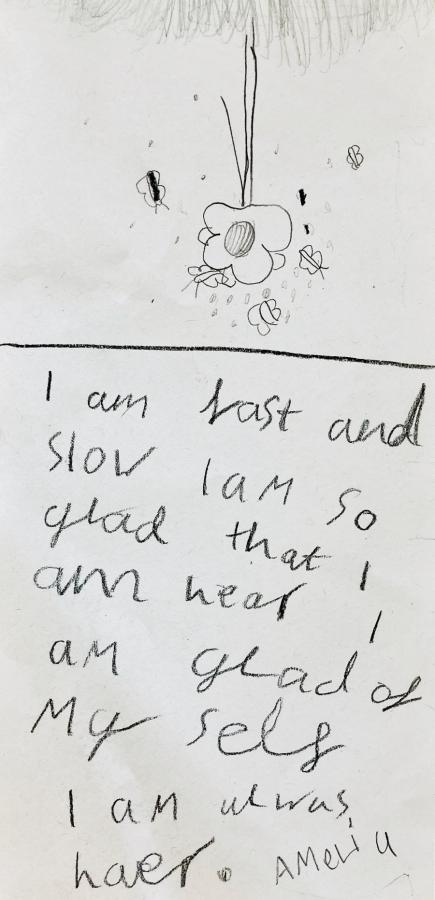 I am fast and
slow I am so
glad that I
am near I
am glad of
My self
I am alwas
haer.
Amelia